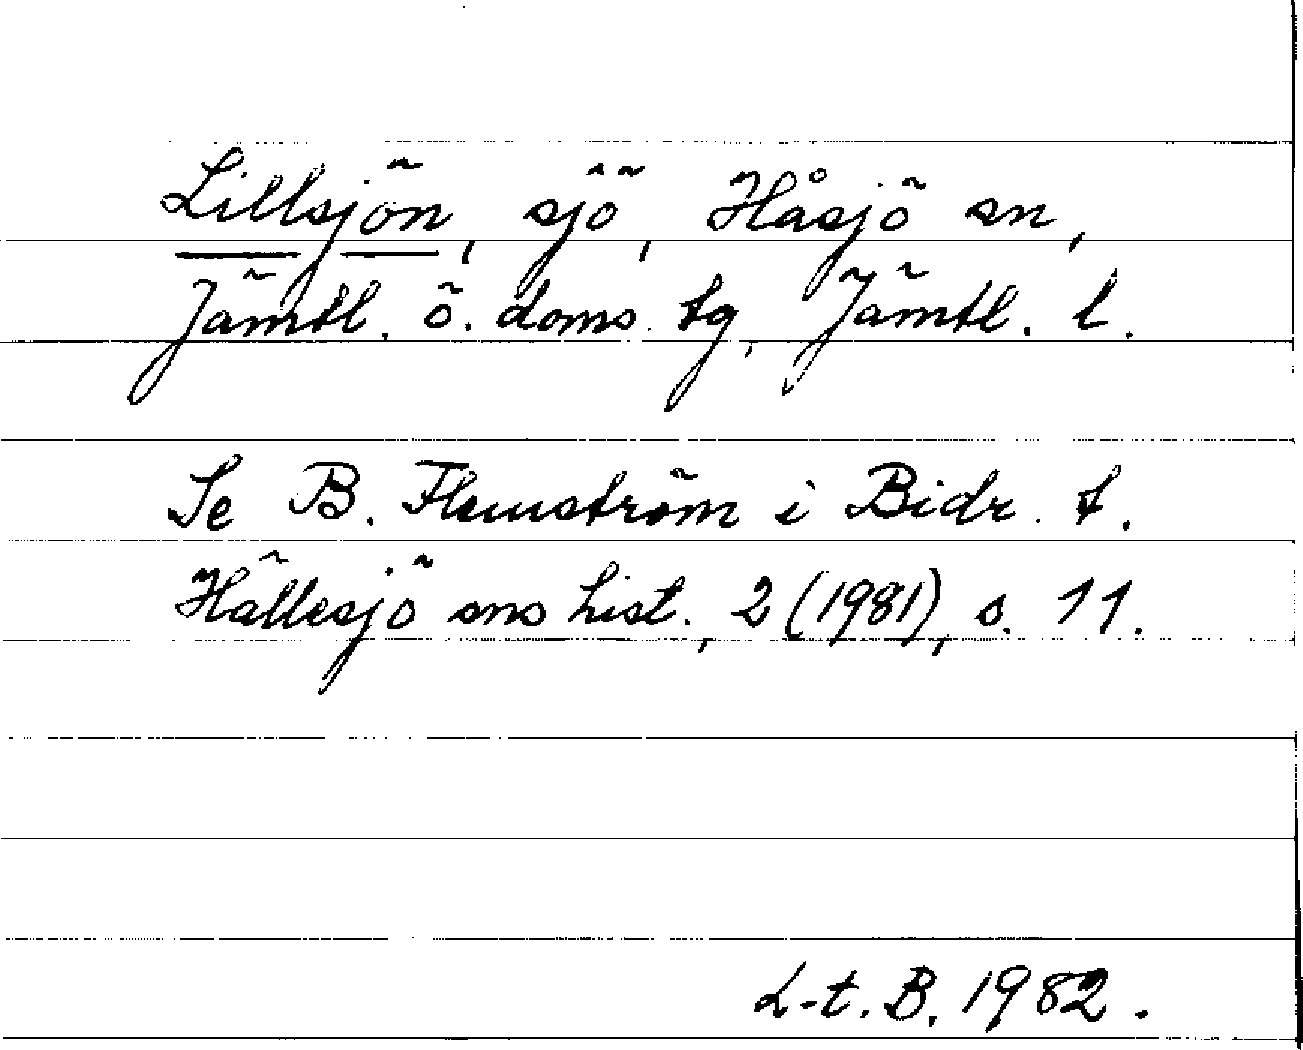 Lillsjön, sjö, Håsjö sn,
Jämtl. ö. doms. tg, Jämtl. l.
Se B. Flemström i Bidr. t.
Hällesjö sns hist., 2 (1981), s. 11.
L-t. B. 1982.